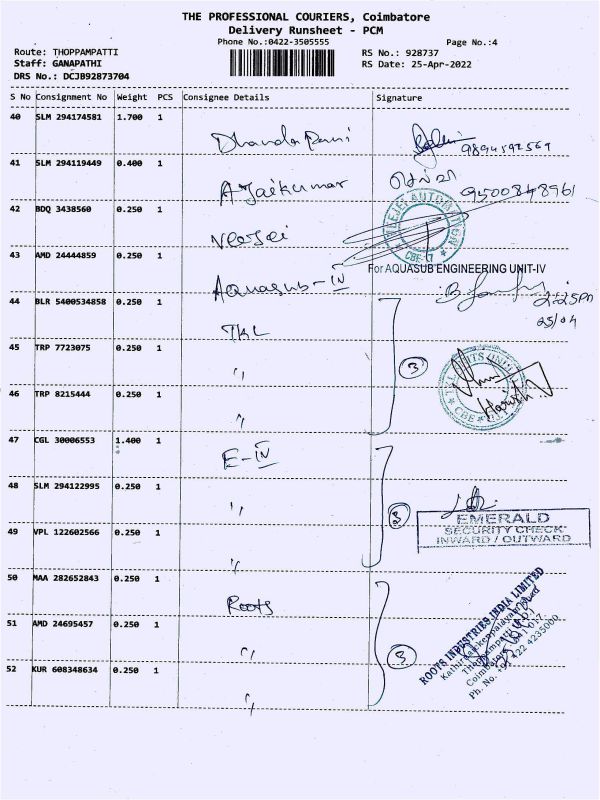 THE PROFESSIONAL COURIERS, Coimbatore
Delivery Runsheet - PCM
Phone No.:0422-3505555
Page No.:4
Route: THOPPAMPATTI
RS No.: 928737
Staff: GANAPATHI
RS Date: 25-Apr-2022
DRS No.: DCJB92873704
S No Consignment No Weight PCS Consignee Details Signature
40 SLM 294174581 1.700 1
Dhanda Pani 9894592569
41 SLM 294119449 0.400 1
A Jaikumar 9500848961
42 BDQ 3438560 0.250 1
43 AMD 24444859 0.250 1
For AQUASUB ENGINEERING UNIT-IV
Aquasub-IV
2:25pm
25/04
44 BLR 5400534858 0.250 1
TKL
45 TRP 7723075 0.250 1
" 3
46 TRP 8215444 0.250 1
"
Harish
47 CGL 30006553 1.400 1
E-IV
48 SLM 294122995 0.250 1
" 3
EMERALD
SECURITY CHECK
INWARD / OUTWARD
49 VPL 122602566 0.250 1
"
50 MAA 282652843 0.250 1
Roots
51 AMD 24695457 0.250 1
" 3
ROOTS INDUSTRIES INDIA LIMITED
Thoppampatti
Ph. No. +91 422 4235000
52 KUR 608348634 0.250 1
"